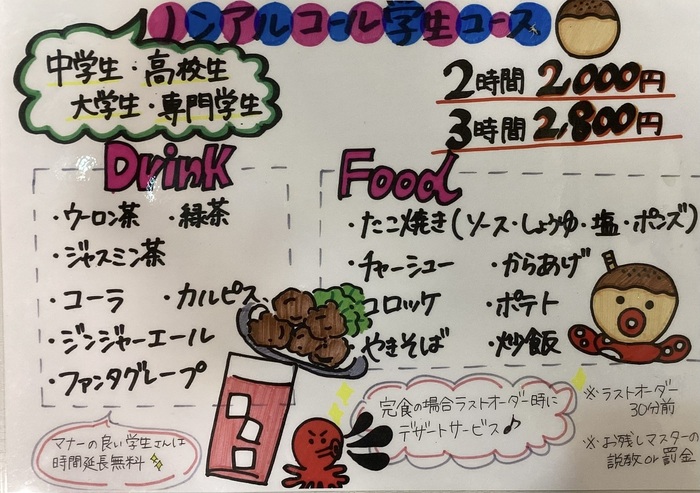 ノンアルコール学生コース
中学生・高校生
大学生・専門学生
2時間 2,000円
3時間 2,800円
Drink
・ウーロン茶 ・緑茶
・ジャスミン茶
・コーラ ・カルピス
・ジンジャーエール
・ファンタグレープ
Food
・たこ焼き(ソース・しょうゆ・塩・ポンズ)
・チャーシュー ・からあげ
コロッケ ・ポテト
・やきそば ・炒飯
マナーの良い学生さんは
時間延長無料
完食の場合ラストオーダー時に
デザートサービス♪
※ラストオーダー
30分前
※お残しマスターの
説教or罰金